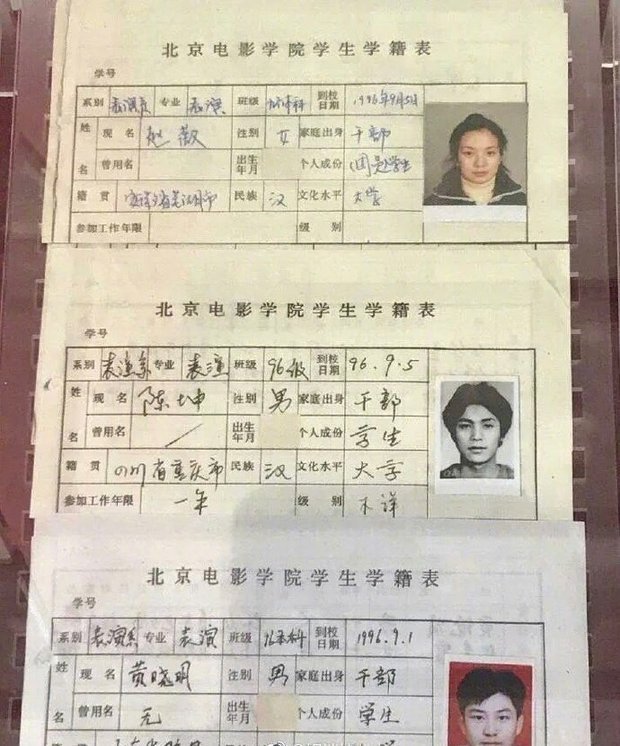 北京电影学院学生学籍表
学号
系别 表演系 专业 表演 班级 96本科 到校日期 1996年9月5日
姓名 现名 赵薇 性别 女 家庭出身 干部
曾用名 出生年月 个人成份 学生
籍贯 安徽省芜湖市 民族 汉 文化水平 大学
参加工作年限 级别
北京电影学院学生学籍表
学号
系别 表演系 专业 表演 班级 96级 到校日期 96.9.5
姓名 现名 陈坤 性别 男 家庭出身 干部
曾用名 / 出生年月 个人成份 学生
籍贯 四川省重庆市 民族 汉 文化水平 大学
参加工作年限 一年 级别 不详
北京电影学院学生学籍表
学号
系别 表演系 专业 表演 班级 96本科 到校日期 1996.9.1
姓名 现名 黄晓明 性别 男 家庭出身 干部
曾用名 无 出生年月 个人成份 学生